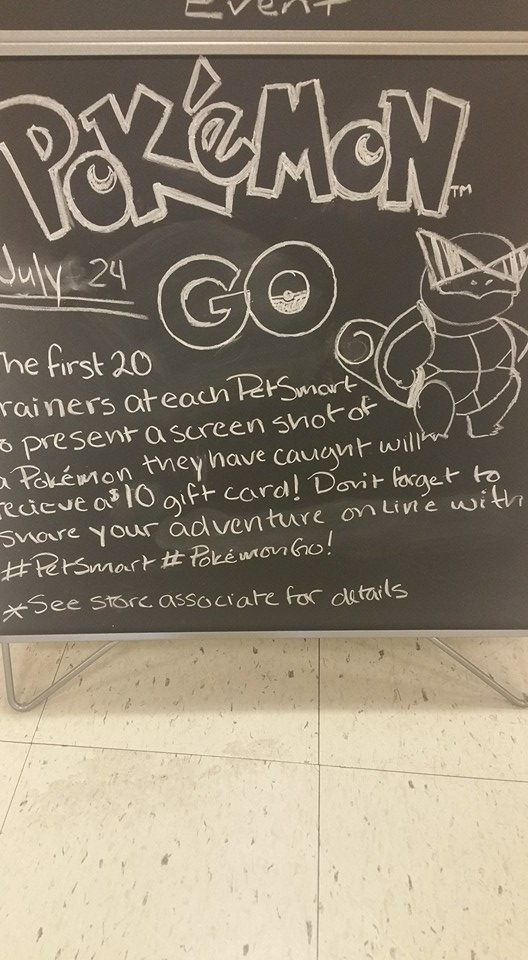 Event
POKéMON™
July 24
GO
The first 20
rainers at each PetSmart
o present a screen shot of
a Pokémon they have caught will
recieve a $10 gift card! Don't forget to
share your adventure online with
#PetSmart #PokémonGo!
*See store associate for details